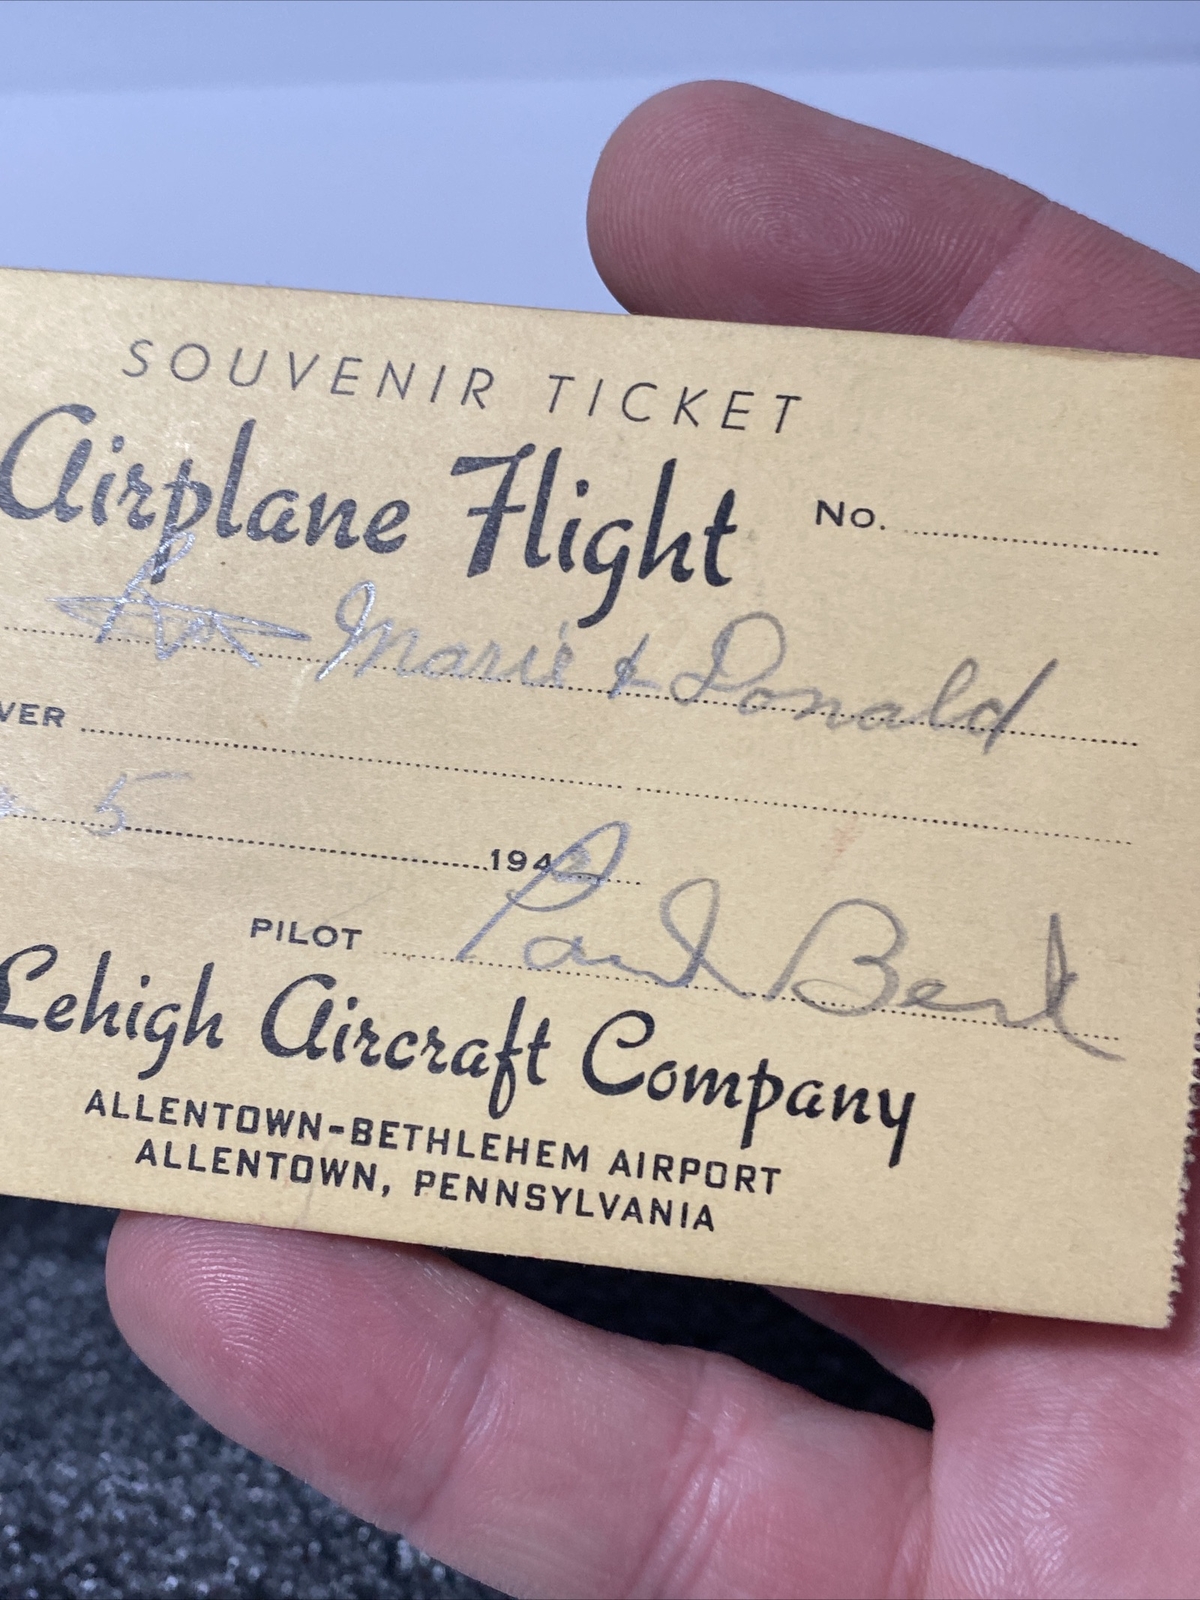 SOUVENIR TICKET
Airplane Flight
No.
Marie & Donald
VER
5
194
PILOT Paul
Lehigh Aircraft Company
ALLENTOWN-BETHLEHEM AIRPORT
ALLENTOWN, PENNSYLVANIA